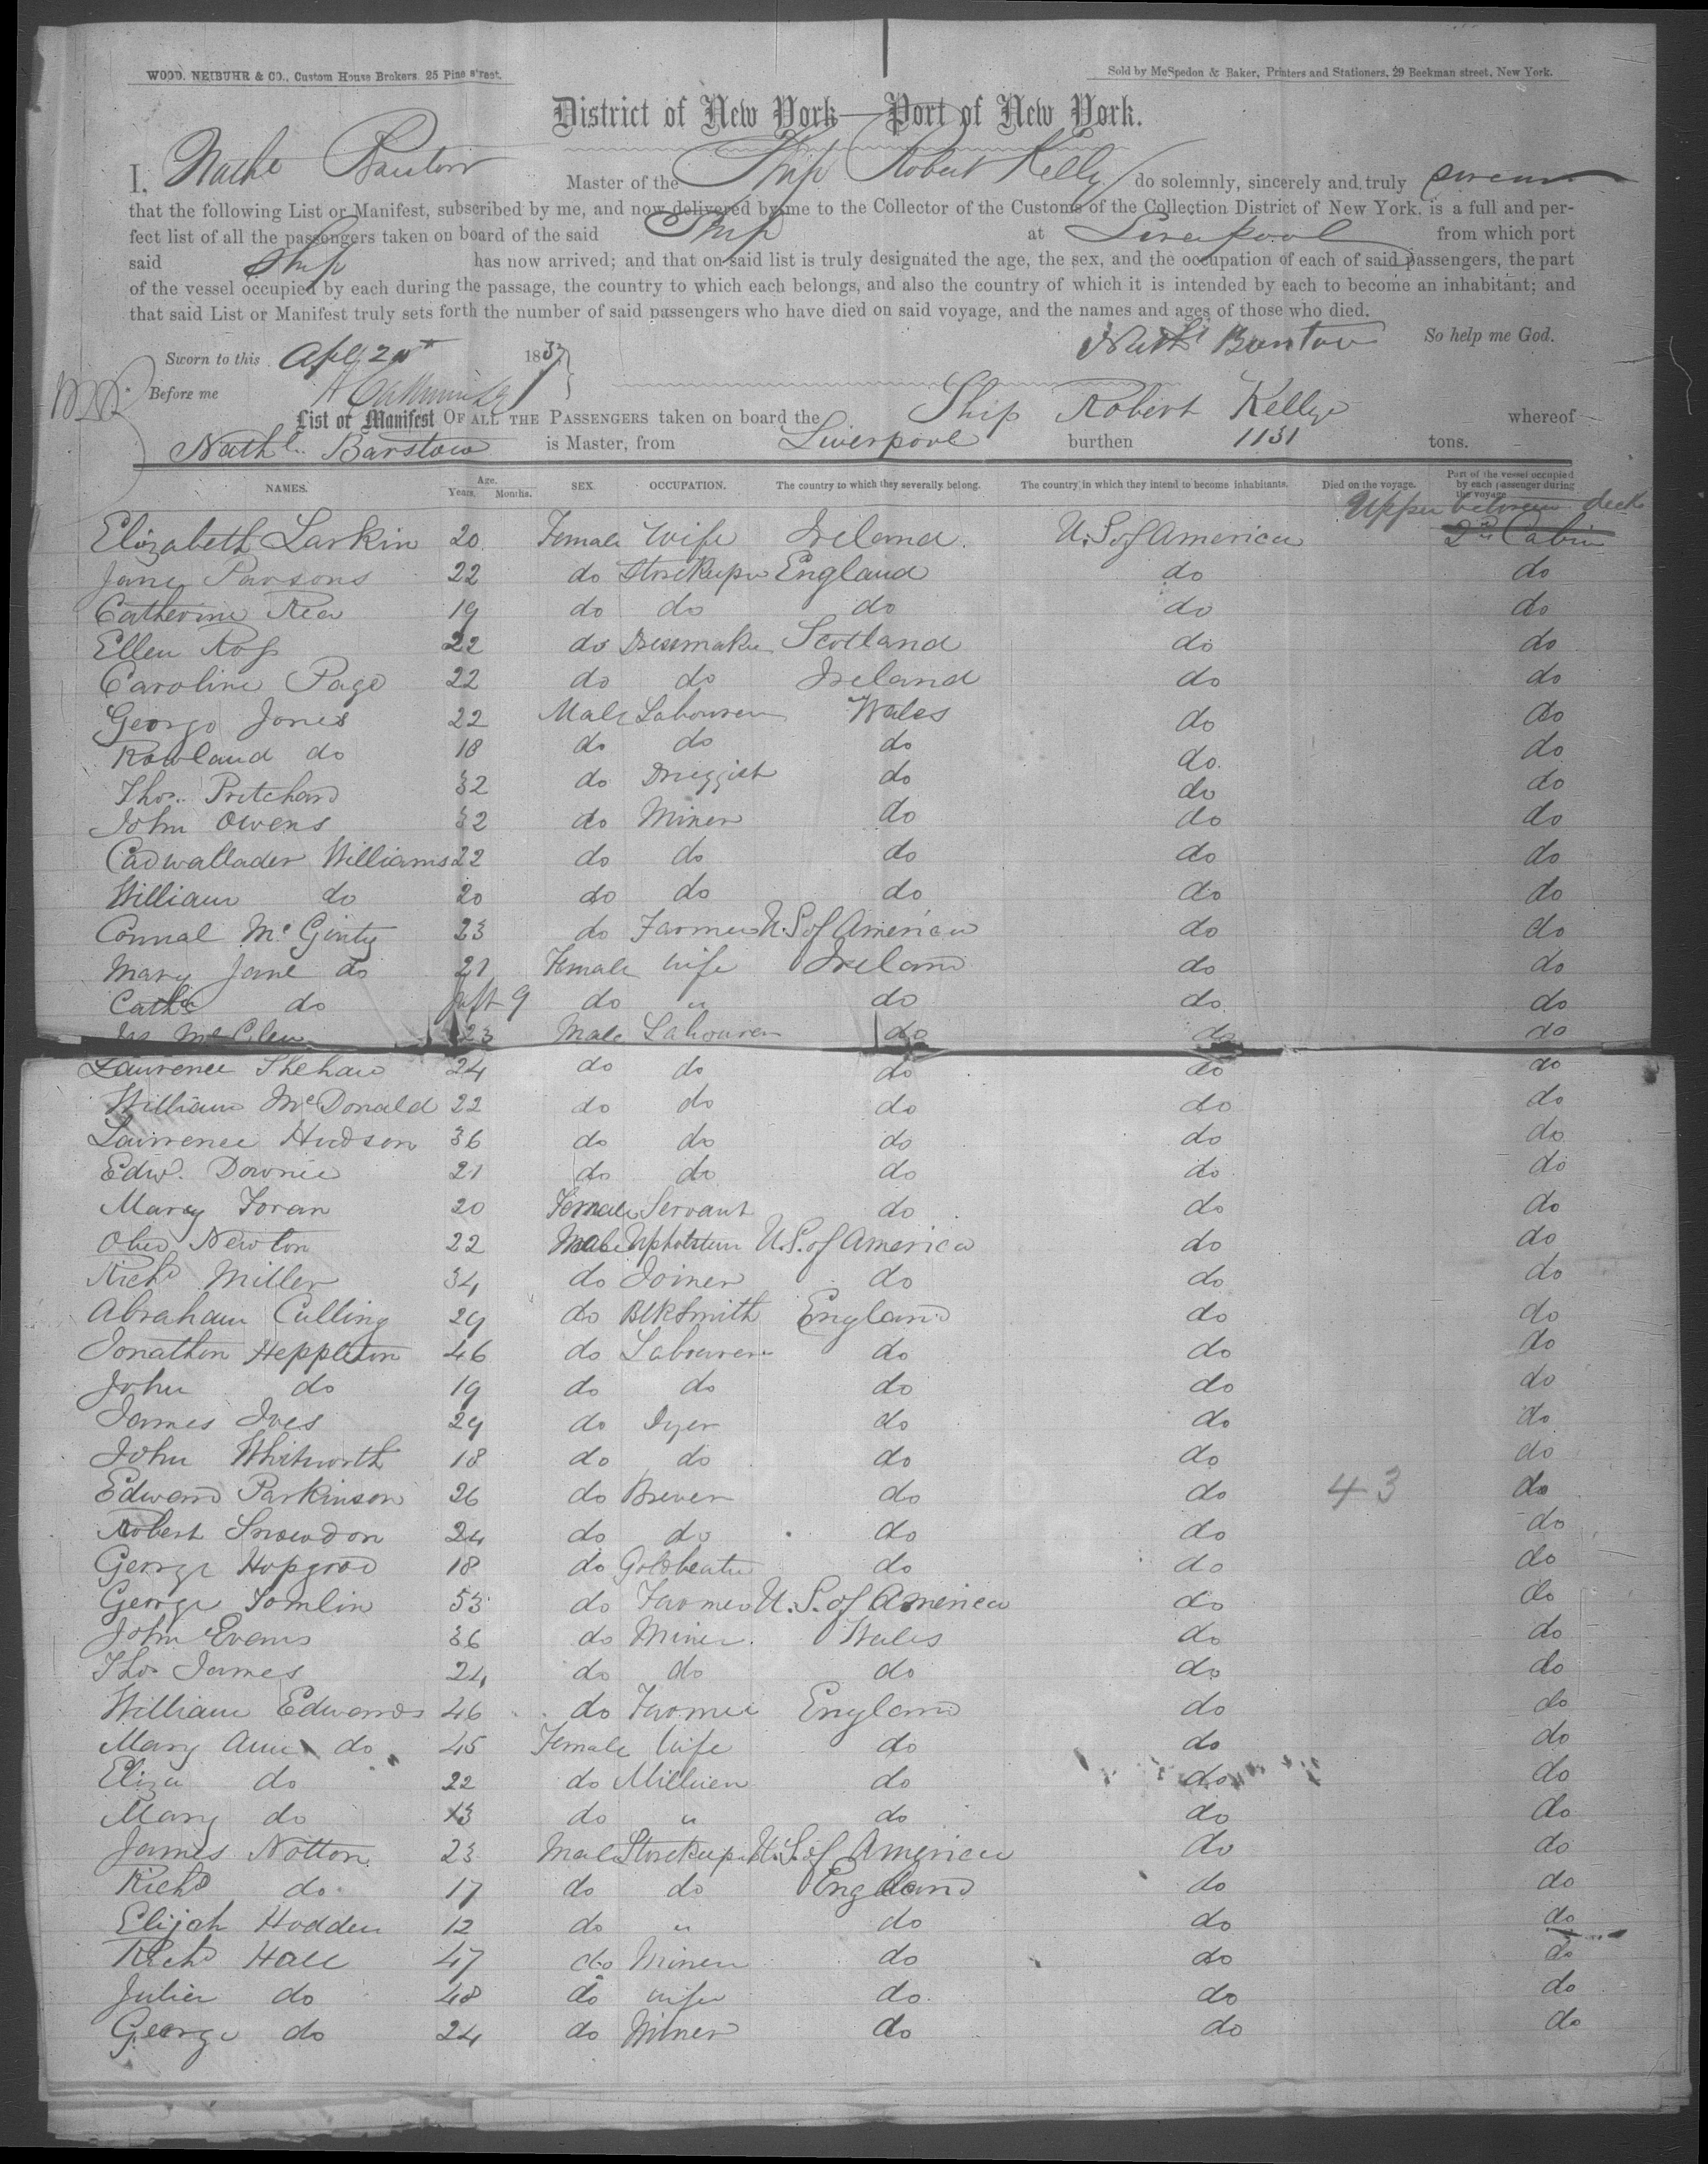 WOOD, NEIBUHR & CO., Custom House Brokers. 25 Pine street.
Sold by McSpedon & Baker, Printers and Stationers, 29 Beekman street, New York.
District of New York—Port of New York.
I, Nathl Barstow Master of the Ship Robert Kelly do solemnly, sincerely and truly swear
that the following List or Manifest, subscribed by me, and now delivered by me to the Collector of the Customs of the Collection District of New York, is a full and per-
fect list of all the passengers taken on board of the said Ship at Liverpool from which port
said Ship has now arrived; and that on said list is truly designated the age, the sex, and the occupation of each of said passengers, the part
of the vessel occupied by each during the passage, the country to which each belongs, and also the country of which it is intended by each to become an inhabitant; and
that said List or Manifest truly sets forth the number of said passengers who have died on said voyage, and the names and ages of those who died.
Nathl Barstow So help me God.
Sworn to this Apl 185
Before me
List or Manifest OF ALL THE PASSENGERS taken on board the Ship Robert Kelly whereof
Nathl. Barstow is Master, from Liverpool burthen 1131 tons.
NAMES. Age. Years. Months. SEX. OCCUPATION. The country to which they severally belong. The country in which they intend to become inhabitants. Died on the voyage. Part of the vessel occupied by each passenger during the voyage
Upper between deck
Elizabeth Larkin 20 Female Wife Ireland. U.S. of America 2nd Cabin
Jane Parsons 22 do Storekeeper England do do
Catherine Rea 19 do do do do do
Ellen Ross 22 do Dressmaker Scotland do do
Caroline Page 22 do do Ireland do do
George Jones 22 Male Labourer Wales do do
Rowland do 18 do do do do. do
Thos. Pritchard 32 do Druggist do do do
John Owens 32 do Miner do do do
Cadwallader Williams 22 do do do do do
William do 20 do do do do do
Connal McGinty 23 do Farmer U.S of America do do
Mary Jane do 21 Female Wife Ireland do do
Cathe do Inft 9 do " do do do
Jas 23 Male Labourer do do do
Lawrence Shehan 24 do do do do do
William McDonald 22 do do do do do
Lawrence Hudson 36 do do do do do
Edw. Downie 21 do do do do do
Mary Foran 20 Female Servant do do do
Newton 22 Male Upholsterer U.S. of America do do
Richd Miller 34 do Joiner do do do
Abraham Culling 29 do Blksmith England do do
Jonathan Heppleton 46 do Labourer do do do
John do 19 do do do do do
James Ives 29 do Dyer do do do
John Whitworth 18 do do do do do
Edward Parkinson 26 do Brewer do do 43 do
Robert Snowdon 24 do do do do do
George Hopgood 18 do Goldbeater do do do
George Tomlin 53 do Farmer U.S. of America do do
John Evans 36 do Miner. Wales do do
Thos James 24 do do do do do
William Edwards 46 do Farmer England do do
Mary Ann do 45 Female Wife do do do
Eliza do 22 do Milliner do do do
Mary do 13 do " do do do
James Notton 23 Male Storekeeper U.S. of America do do
Richd do 17 do do England do do
Elijah Hodden 12 do " do do do
Richd Hall 47 do Miner do do do
Julia do 48 do wife do. do do
George do 24 do Miner do do do